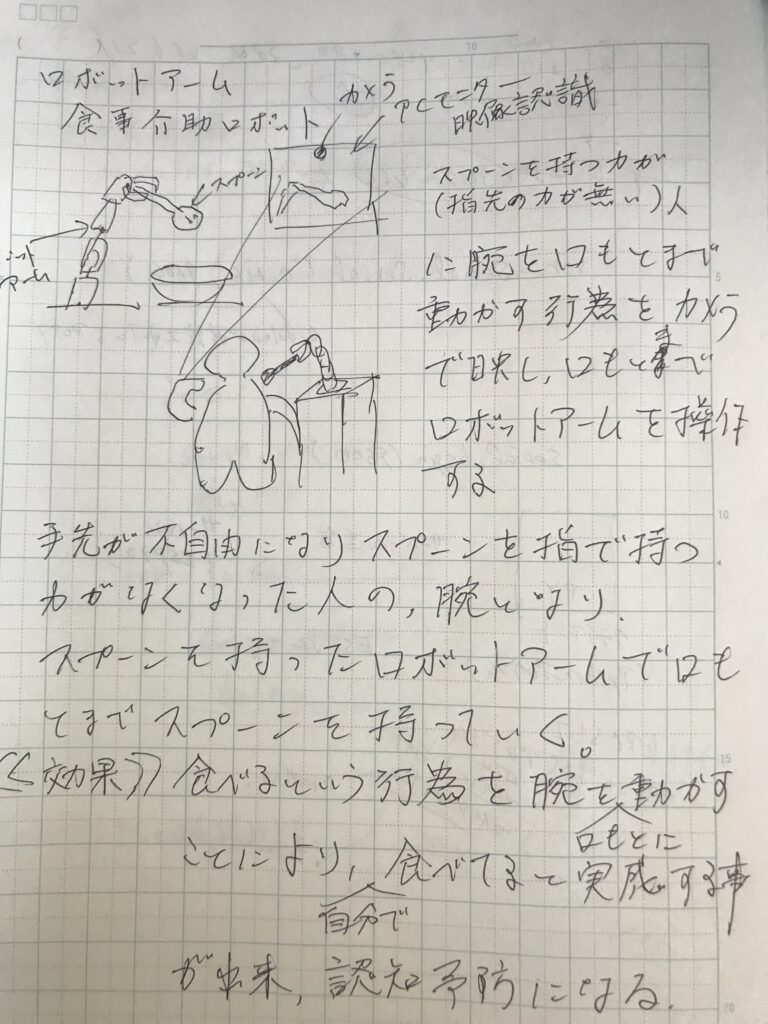 ロボットアーム
食事介助ロボット
カメラ
PCモニター
映像認識
スプーン
アーム
スプーンを持つ力が
(指先の力が無い)人
に腕を口もとまで
動かす行為をカメラ
で映し,口もとまで
ロボットアームを操作
する
手先が不自由になりスプーンを指で持つ
力がなくなった人の,腕となり.
スプーンを持ったロボットアームで口も
とまでスプーンを持っていく。
≪効果≫食べるという行為を腕を口もとに動かす
ことにより,自分で食べてると実感する事
が出来,認知予防になる.
10
5
10
15
20